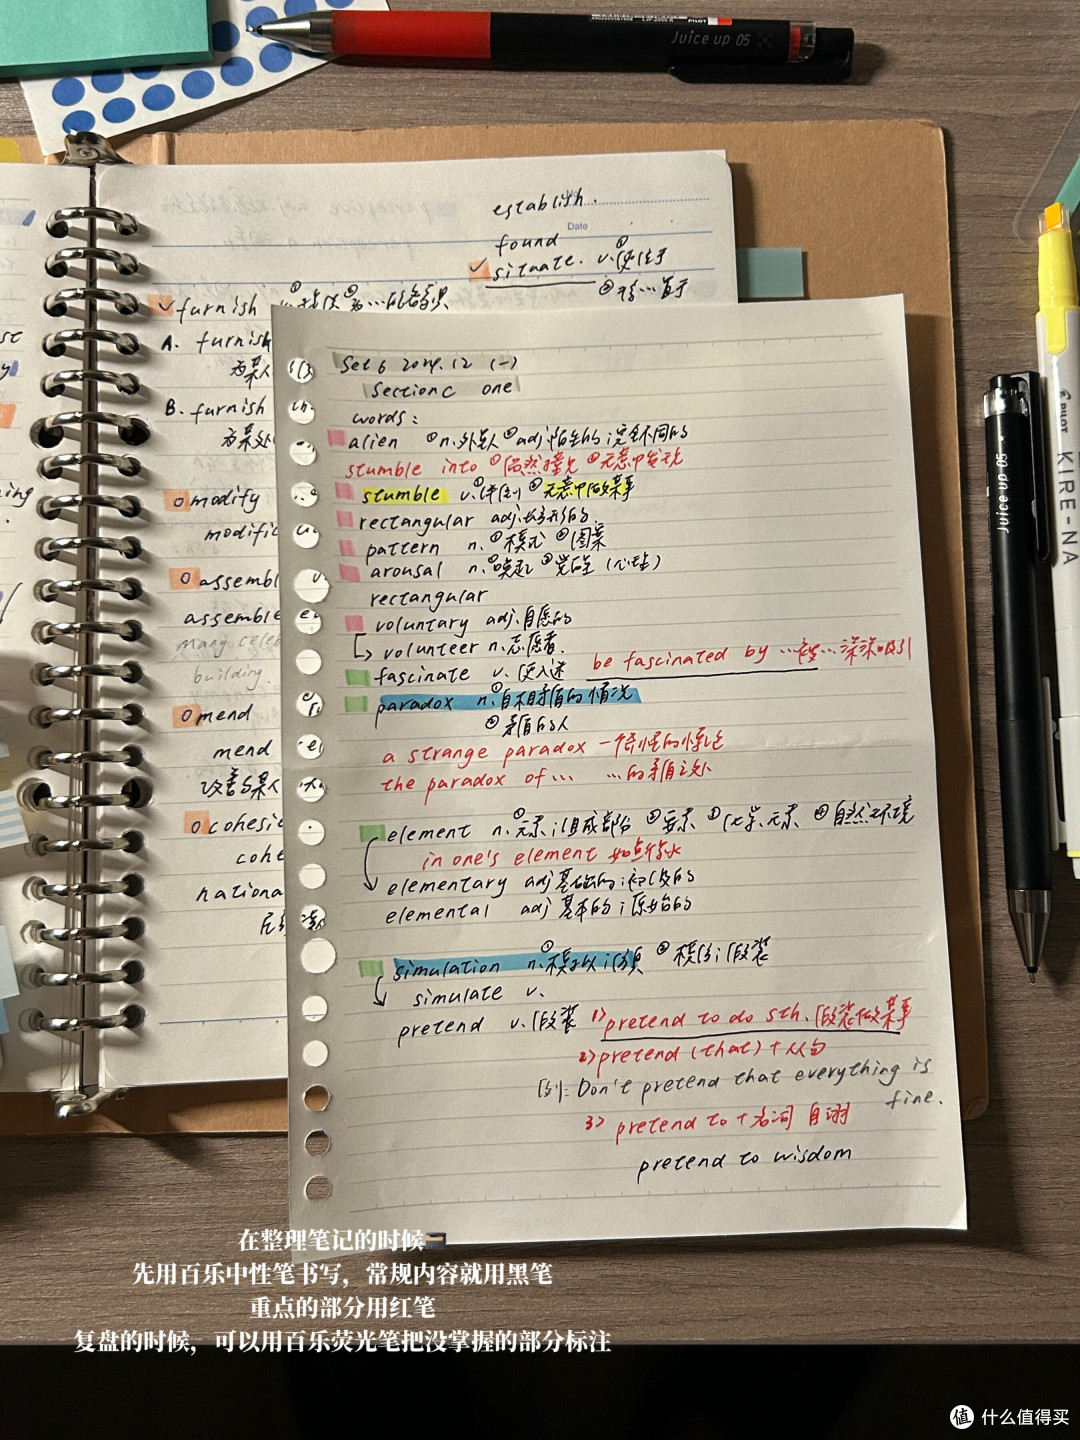 PILOT
Juice up 05
establish.
No.
Date
found
✓ situate. v.①使位于
②将…置于
✓furnish v.①提供②为…配备家具
A. furnish
为某人
B. furnish
为某处
modify
modific
assembl
assemble
many celeb
building.
mend
mend
改善与某人
cohesi
cohe
nationa
Set 6 2024.12 (一)
Section C one
words:
alien ①n.外星人②adj.陌生的;完全不同的
stumble into ①偶然撞见 ②无意中发现
stumble v.①绊倒②无意中做某事
rectangular adj.长方形的
pattern n.①模式 ②图案
arousal n.①唤起 ②觉醒(心理)
rectangular
voluntary adj.自愿的
volunteer n.志愿者.
fascinate v.使入迷 be fascinated by …被…深深吸引
paradox n.①自相矛盾的情况
②矛盾的人
a strange paradox 一个奇怪的悖论
the paradox of… …的矛盾之处
element n.①元素;组成部分 ②要素 ③化学元素 ④自然环境
in one's element 如鱼得水
elementary adj.基础的;初级的
elemental adj 基本的;原始的
simulation n.①模拟;仿真 ②模仿;假装
simulate v.
pretend v.假装 1)pretend to do sth.假装做某事
2)pretend (that)+从句
例: Don't pretend that everything is
fine.
3) pretend to +名词 自诩
pretend to wisdom
Juice up 05
PILOT
KIRE-NA
在整理笔记的时候
先用百乐中性笔书写，常规内容就用黑笔
重点的部分用红笔
复盘的时候，可以用百乐荧光笔把没掌握的部分标注
值 什么值得买